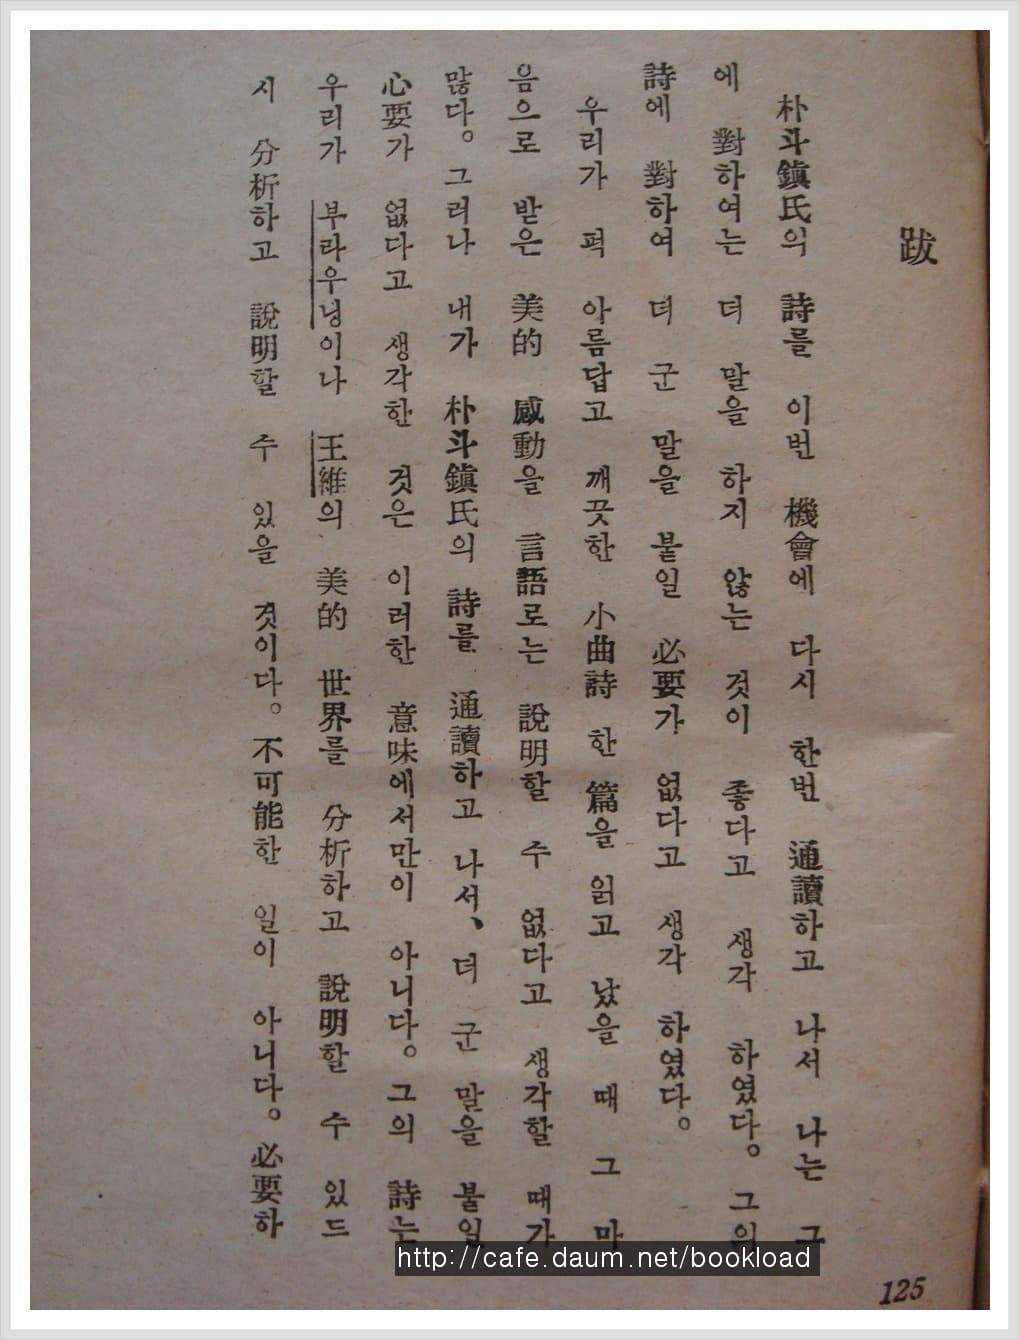 跋
朴斗鎭氏의 詩를 이번 機會에 다시 한번 通讀하고 나서 나는 그
에 對하여는 더 말을 하지 않는 것이 좋다고 생각 하였다。 그의
詩에 對하여 뎌 군 말을 붙일 必要가 없다고 생각 하였다。
우리가 퍽 아름답고 깨끗한 小曲詩 한 篇을 읽고 났을 때 그 마
음으로 받은 美的 感動을 言語로는 說明할 수 없다고 생각할 때가
많다。그러나 내가 朴斗鎭氏의 詩를 通讀하고 나서、뎌 군 말을 붙일
心要가 없다고 생각한 것은 이러한 意味에서만이 아니다。그의 詩는
우리가 부라우닝이나 王維의 美的 世界를 分析하고 說明할 수 있드
시 分析하고 說明할 수 있을 것이다。不可能한 일이 아니다。必要하
125
http://cafe.daum.net/bookload